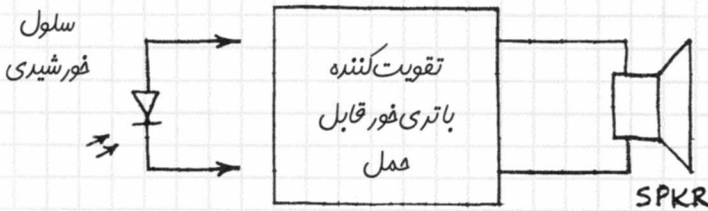 سلول
خورشیدی
تقویت‌کننده
باتری‌خور قابل
حمل
SPKR